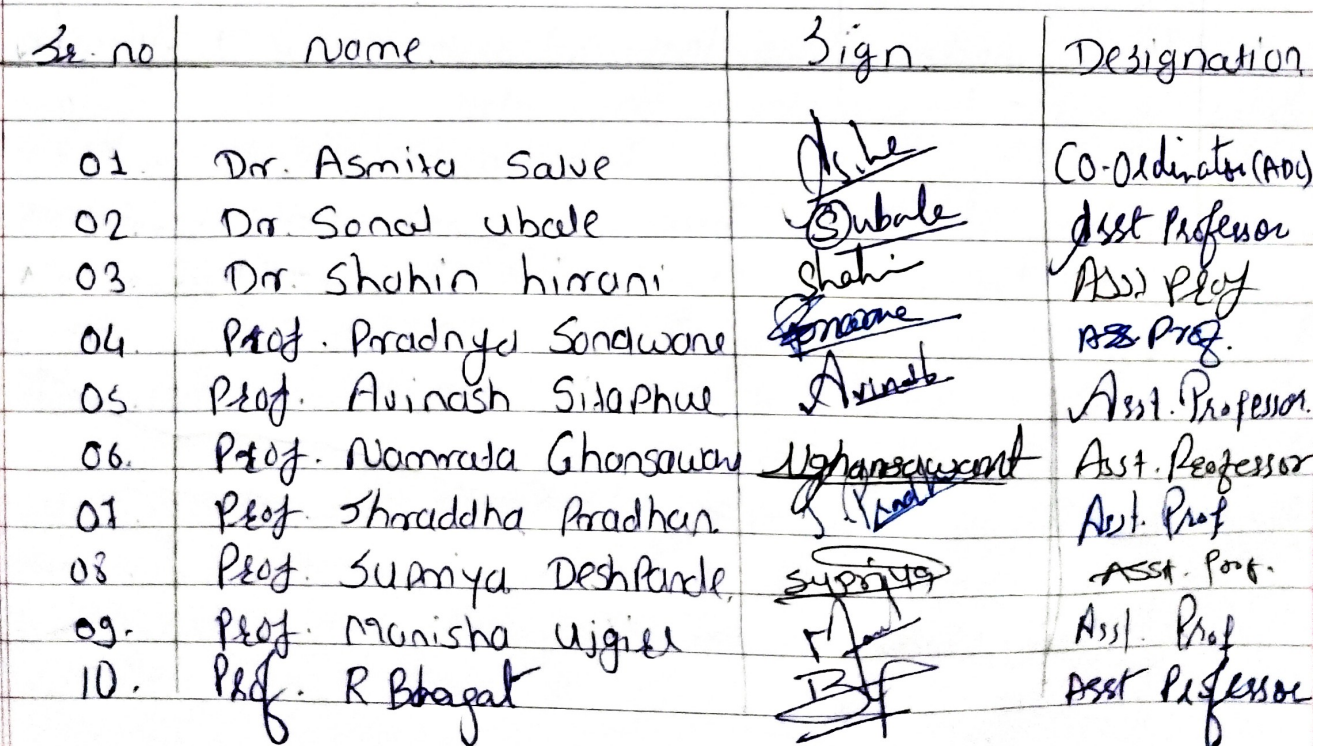 Sr. no Name. Sign. Designation
01. Dr. Asmita Salve Co-Ordinator (ADC)
02 Dr. Sonal Ubale Subale Asst Professor
03 Dr. Shahin hirani Shahi Asst Prof
04. Prof. Pradnya Sonawane Ass Prof.
05 Prof. Avinash Sitaphule Avinash Asst. Professor.
06. Prof. Namrata Ghansawant Nghansawant Asst. Professor
07 Prof. Shraddha Pradhan. S. Pradhan Asst. Prof
08 Prof. Supriya Deshpande. Supriya Asst. Prof.
09. Prof. Manisha Ujgire Asst. Prof
10. Prof. R Bhagat Asst Professor